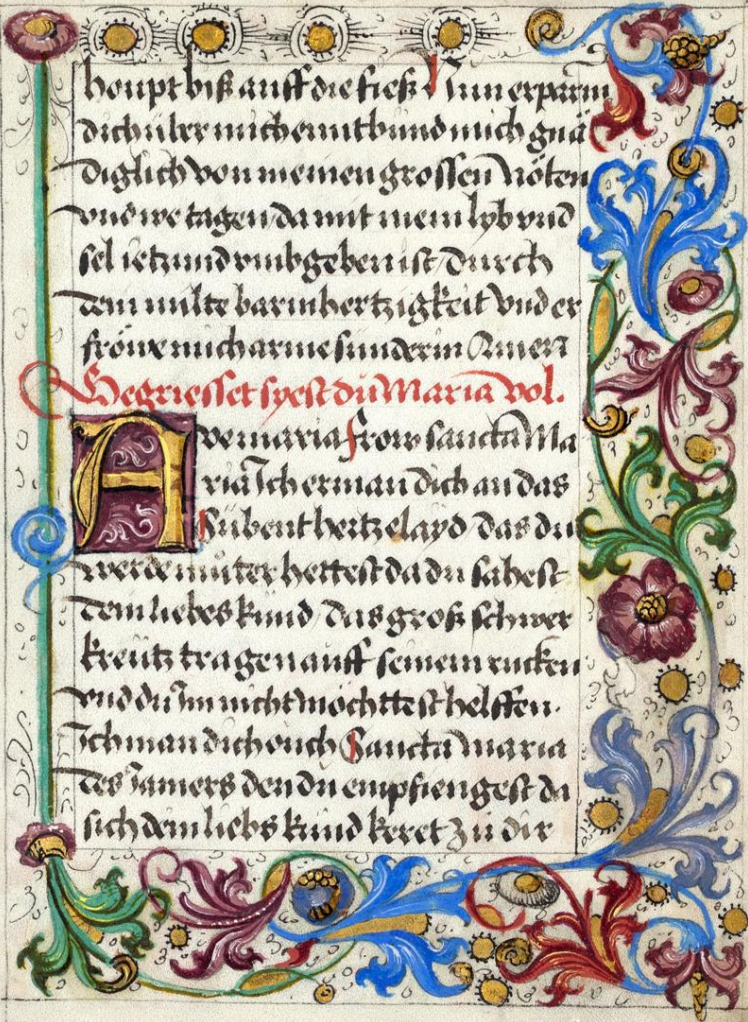 houpt biß auff die fieß Nun erparm
dich über mich ermtbund mich gnä
diglich von meinen grossen nöten
vnd we tagen da mit mein lyb vnd
sel ietzund vmbgeben ist durch
dein milte barmhertzigkeit vnd er
fröw mich arme sunderin Amen
Gegriesset syest du Maria vol.
Ave maria frow sancta Ma
ria Ich erman dich an das
Sübent hertzelayd das du
werde muter hettest da du sahest
dein liebes kind das groß schwer
kreütz tragen auff seinem rucken
vnd du Im nicht möchttest helffen.
Ich man dich ouch Sancta maria
des Jamers den du empfiengest da
sich dein liebs kind keret zu dir